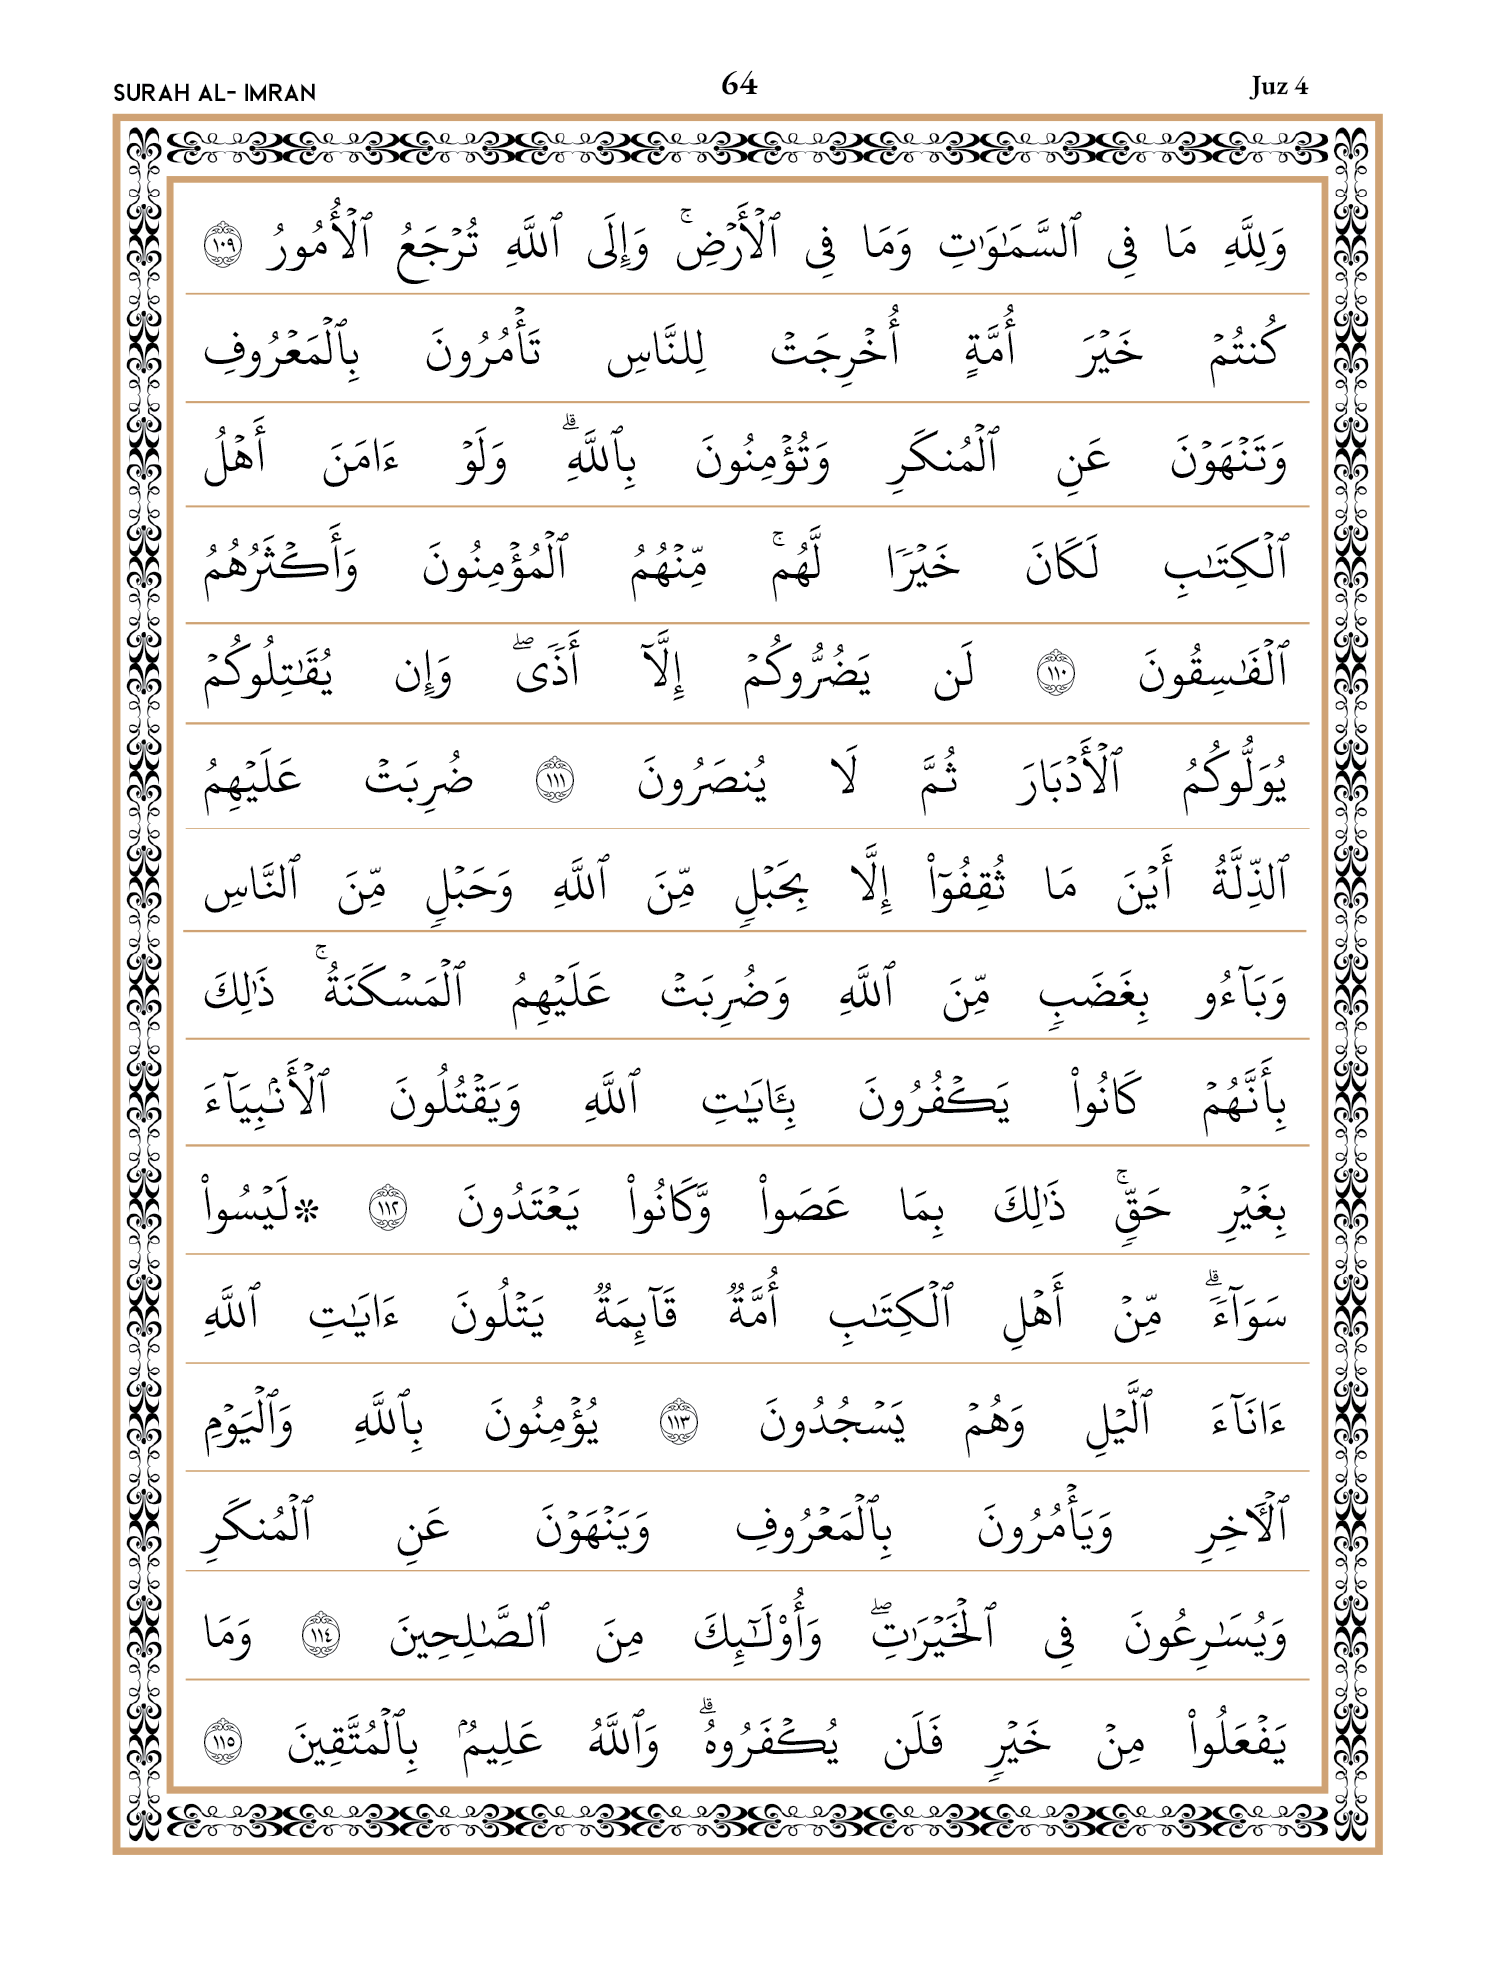 SURAH AL- IMRAN 64 Juz 4
وَلِلَّهِ مَا فِى ٱلسَّمَـٰوَٰتِ وَمَا فِى ٱلْأَرْضِ ۚ وَإِلَى ٱللَّهِ تُرْجَعُ ٱلْأُمُورُ ١٠٩
كُنتُمْ خَيْرَ أُمَّةٍ أُخْرِجَتْ لِلنَّاسِ تَأْمُرُونَ بِٱلْمَعْرُوفِ
وَتَنْهَوْنَ عَنِ ٱلْمُنكَرِ وَتُؤْمِنُونَ بِٱللَّهِ ۗ وَلَوْ ءَامَنَ أَهْلُ
ٱلْكِتَـٰبِ لَكَانَ خَيْرًا لَّهُم ۚ مِّنْهُمُ ٱلْمُؤْمِنُونَ وَأَكْثَرُهُمُ
ٱلْفَـٰسِقُونَ ١١٠ لَن يَضُرُّوكُمْ إِلَّآ أَذًى ۖ وَإِن يُقَـٰتِلُوكُمْ
يُوَلُّوكُمُ ٱلْأَدْبَارَ ثُمَّ لَا يُنصَرُونَ ١١١ ضُرِبَتْ عَلَيْهِمُ
ٱلذِّلَّةُ أَيْنَ مَا ثُقِفُوٓا۟ إِلَّا بِحَبْلٍ مِّنَ ٱللَّهِ وَحَبْلٍ مِّنَ ٱلنَّاسِ
وَبَآءُو بِغَضَبٍ مِّنَ ٱللَّهِ وَضُرِبَتْ عَلَيْهِمُ ٱلْمَسْكَنَةُ ۚ ذَٰلِكَ
بِأَنَّهُمْ كَانُوا۟ يَكْفُرُونَ بِـَٔايَـٰتِ ٱللَّهِ وَيَقْتُلُونَ ٱلْأَنۢبِيَآءَ
بِغَيْرِ حَقٍّ ۚ ذَٰلِكَ بِمَا عَصَوا۟ وَّكَانُوا۟ يَعْتَدُونَ ١١٢ ۞لَيْسُوا۟
سَوَآءً ۗ مِّنْ أَهْلِ ٱلْكِتَـٰبِ أُمَّةٌ قَآئِمَةٌ يَتْلُونَ ءَايَـٰتِ ٱللَّهِ
ءَانَآءَ ٱلَّيْلِ وَهُمْ يَسْجُدُونَ ١١٣ يُؤْمِنُونَ بِٱللَّهِ وَٱلْيَوْمِ
ٱلْـَٔاخِرِ وَيَأْمُرُونَ بِٱلْمَعْرُوفِ وَيَنْهَوْنَ عَنِ ٱلْمُنكَرِ
وَيُسَـٰرِعُونَ فِى ٱلْخَيْرَٰتِ ۖ وَأُو۟لَـٰٓئِكَ مِنَ ٱلصَّـٰلِحِينَ ١١٤ وَمَا
يَفْعَلُوا۟ مِنْ خَيْرٍ فَلَن يُكْفَرُوهُ ۗ وَٱللَّهُ عَلِيمٌۢ بِٱلْمُتَّقِينَ ١١٥